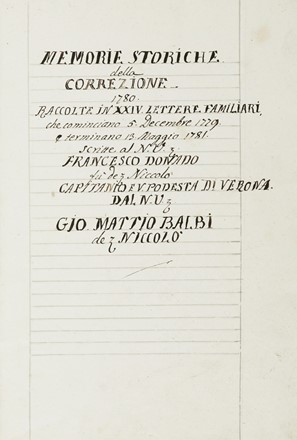 MEMORIE STORICHE
della
CORREZIONE
1780
RACCOLTE IN XXIV LETTERE FAMILIARI,
che cominciano 5 Decembre 1779
e terminano 13 Maggio 1781.
scritte al N. U. z
FRANCESCO DONADO
fù de z Niccolò
CAPITANIO E V. PODESTA DI VERONA
DAL N. U z
GIO MATTIO BALBI
de z NICCOLÒ